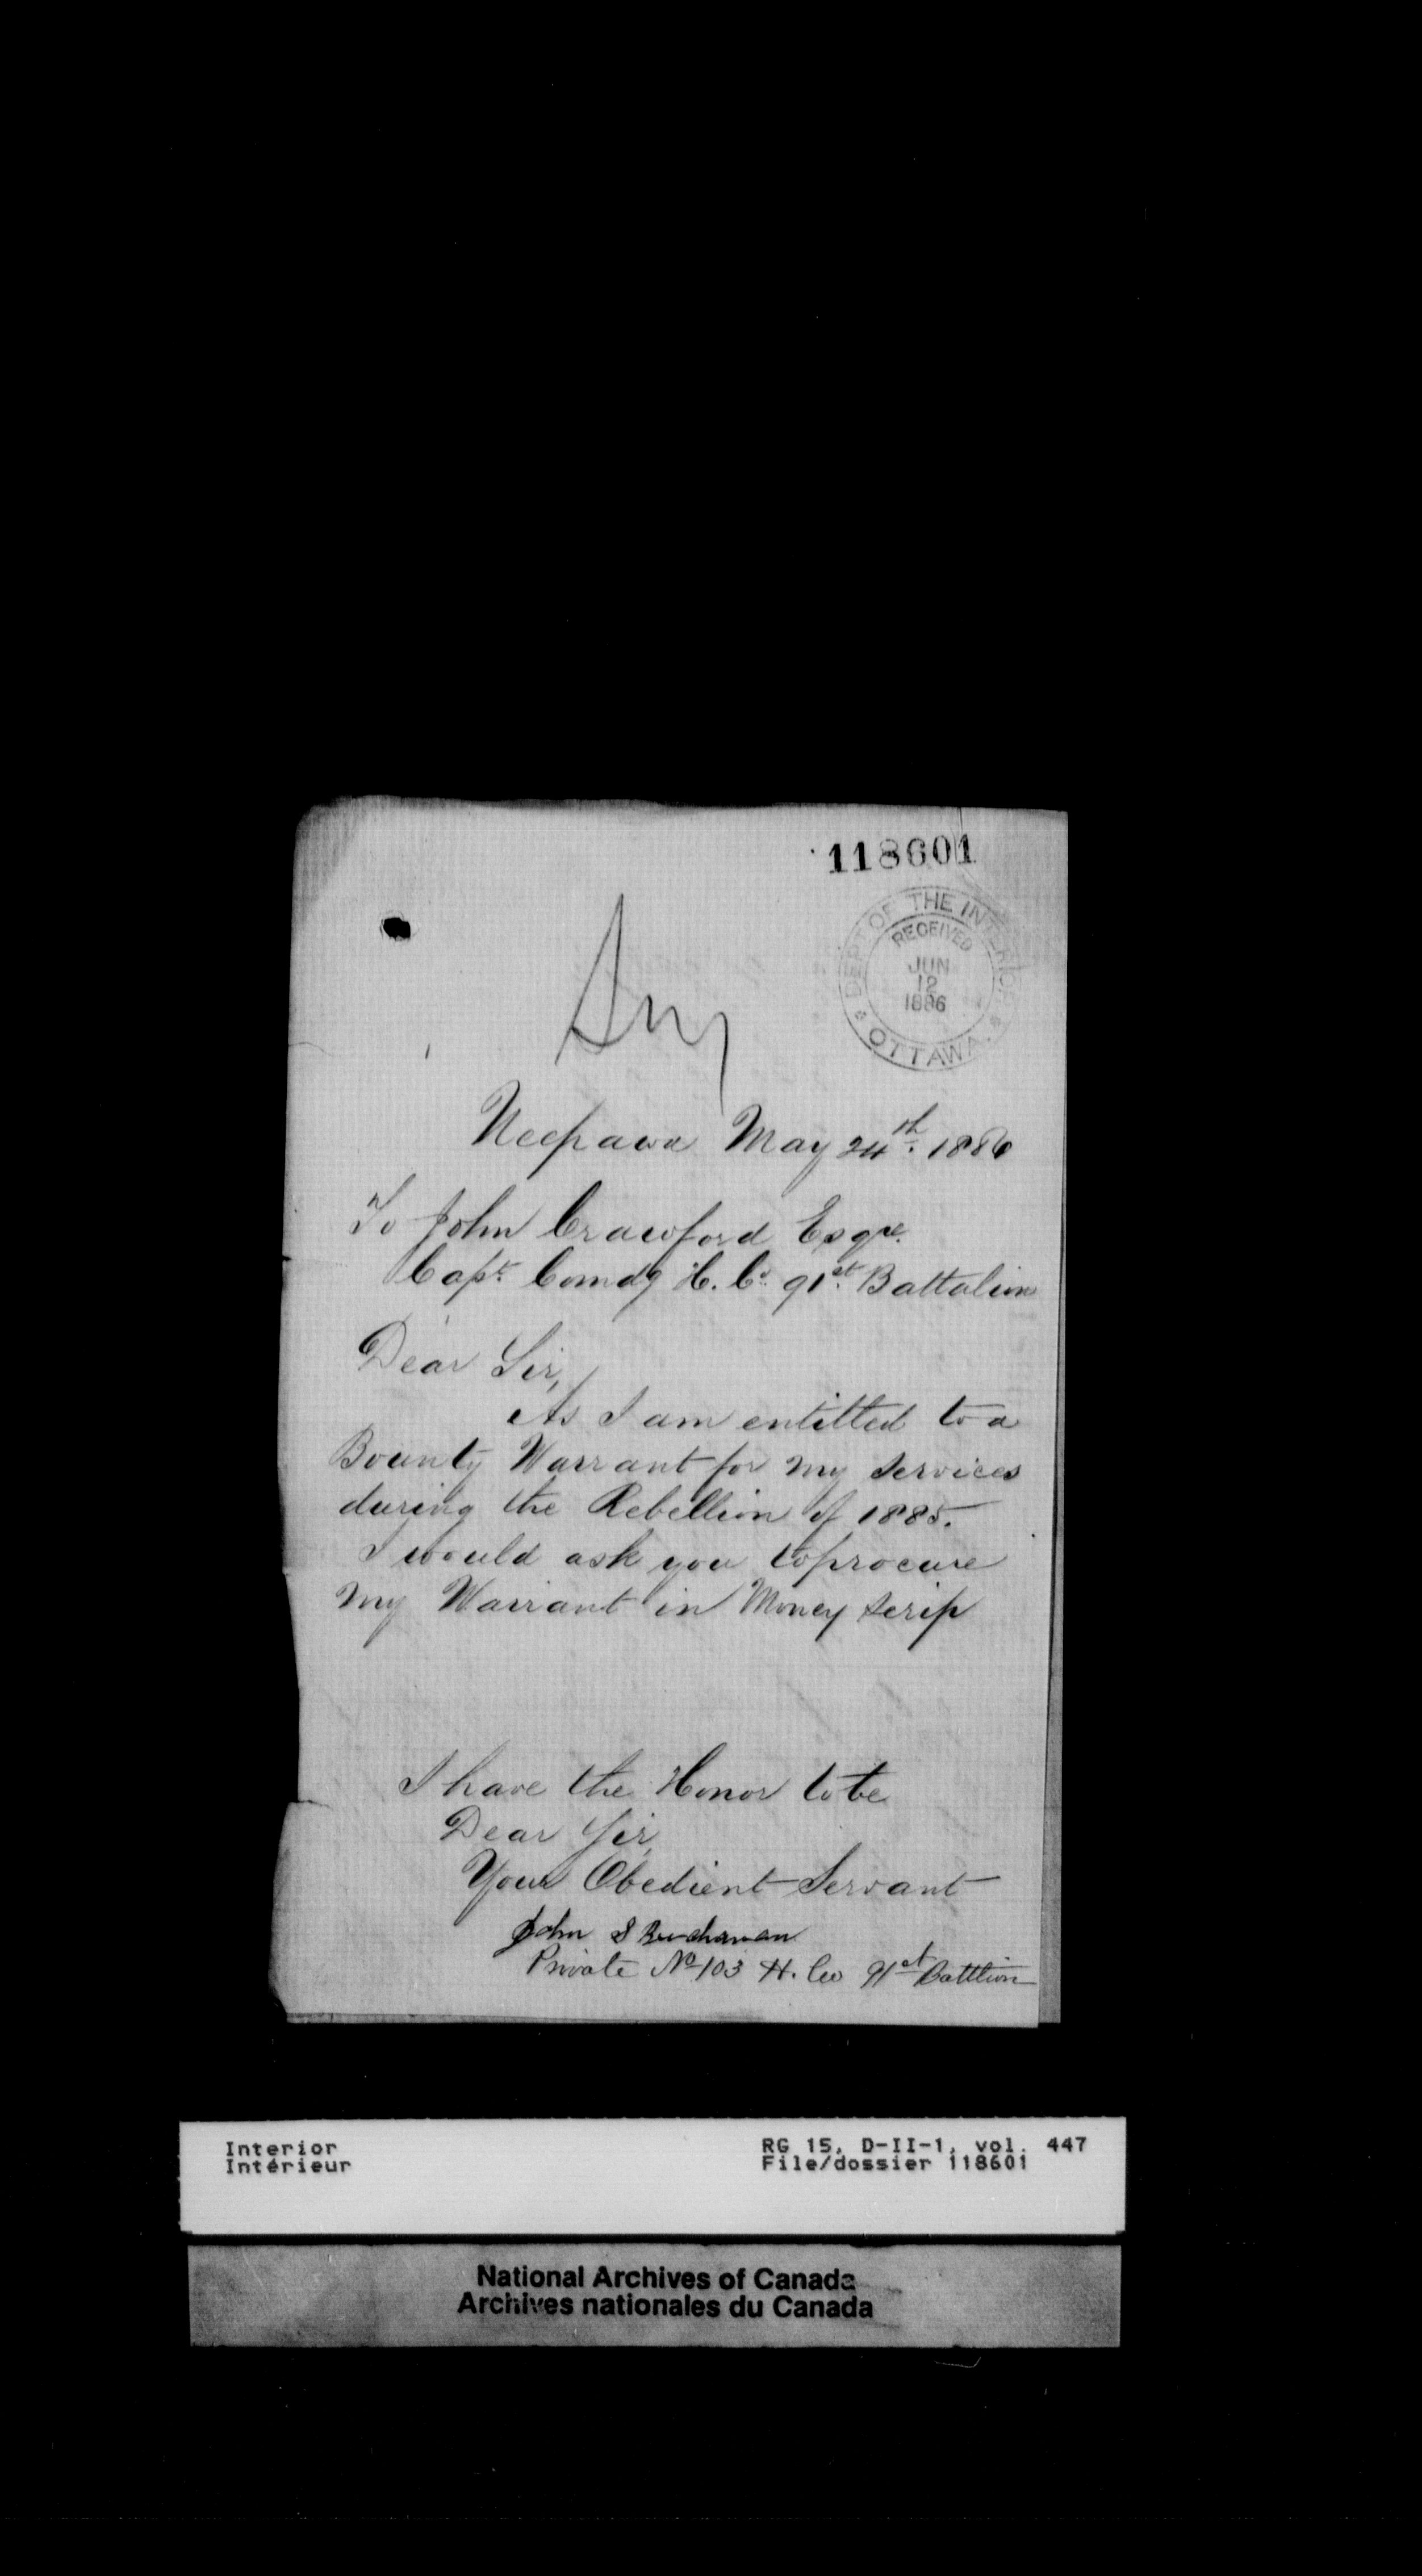 118601
DEPT OF THE INTERIOR
RECEIVED
JUN
12
1886
OTTAWA.
Neepawa May 24th. 1886
To John Crawford Esqre.
Capt. Comdg H. Co. 91st. Battalion
Dear Sir,
As I am entitled to a
Bounty Warrant for my services
during the Rebellion of 1885.
I would ask you to procure
my Warrant in Money Scrip
I have the Honor to be
Dear Sir,
Your Obedient Servant
John S Buchanan
Private No 103 H. Co 91st Battlion
Interior
Intérieur
RG 15, D-II-1, vol. 447
File/dossier 118601
National Archives of Canada
Archives nationales du Canada